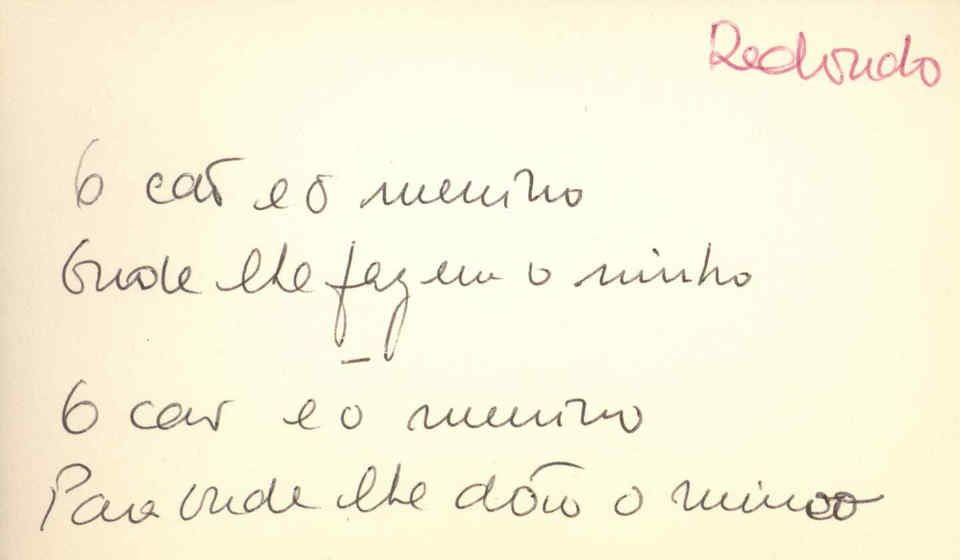 Redondo
O cão e o menino
Onde lhe fazem o ninho
—
O cão e o menino
Para onde lhe dão o mimo